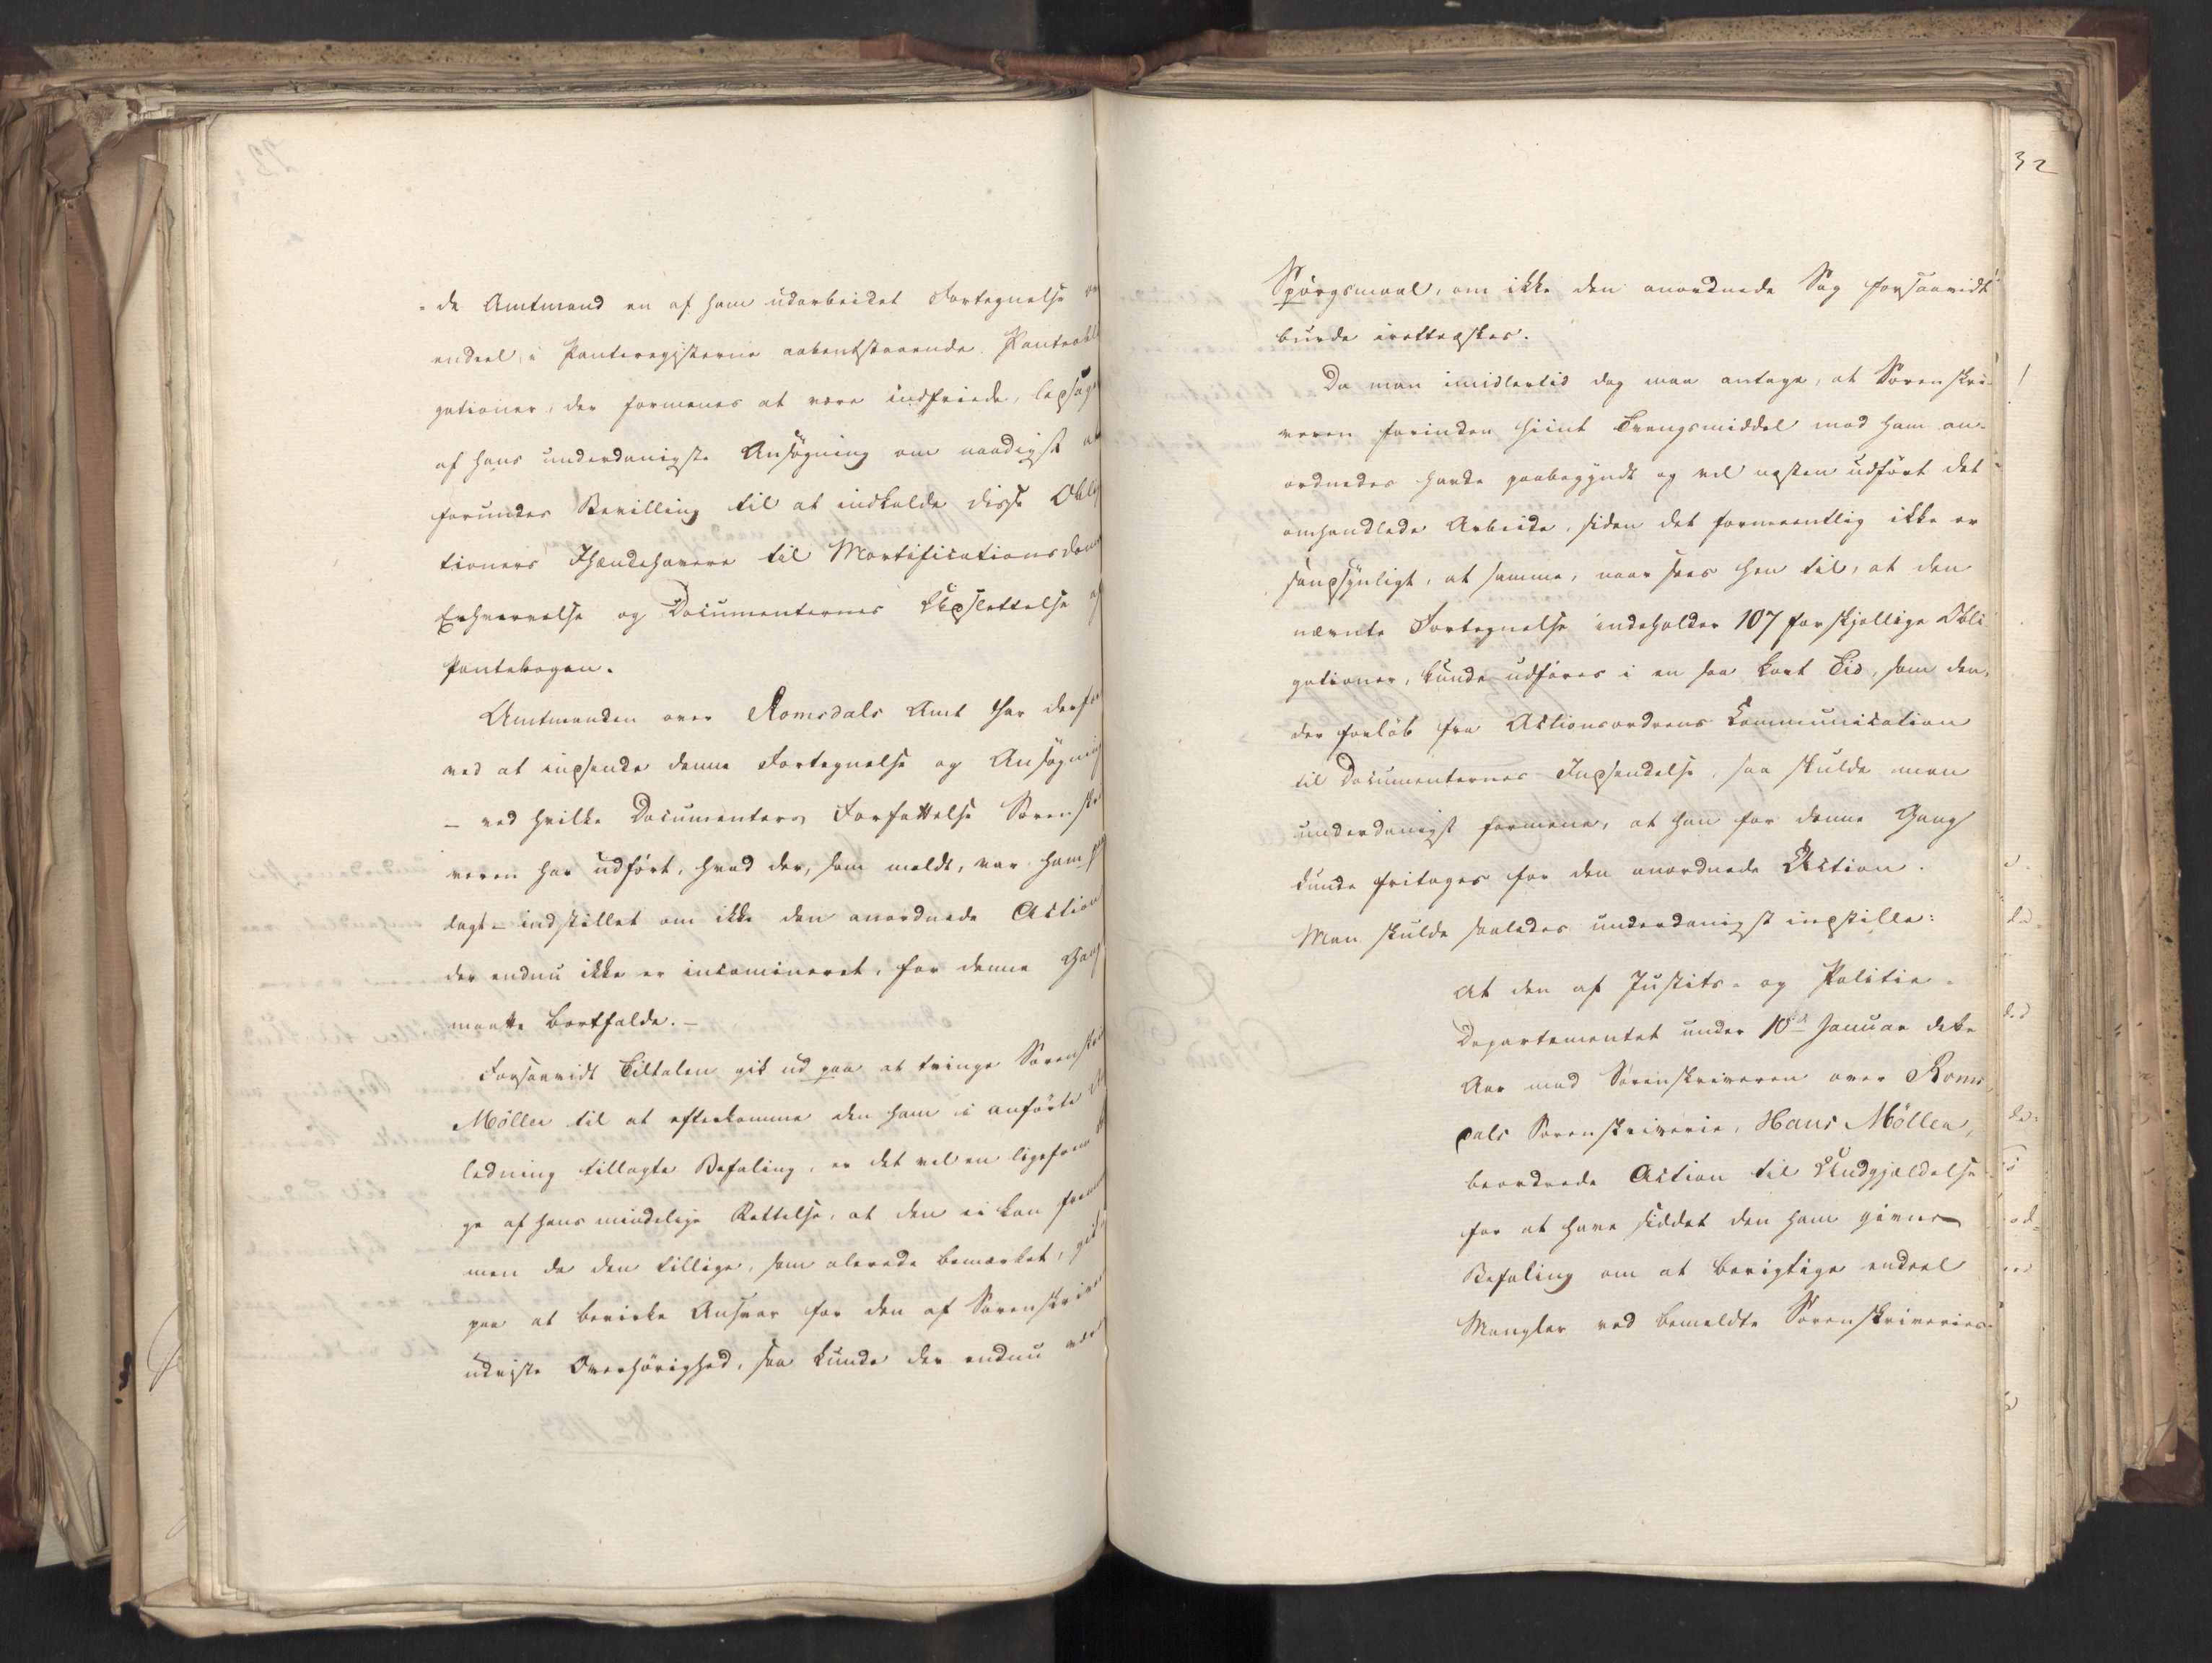 de Amtmand en af ham udarbeidet Fortegnelse ov
endeel, i Panteregisterne aabentstaaende Panteobli
gationer, der formenes at være indfriede, ledsaget
af hans underdanigste Ansøgning om naadigst at
forundes Bevilling til at indkalde disse Oblig
tioners Ihændehavere til Mortificationsdoms
Erhvervelse og Documenternes Udslettelse af
Pantebogen.
Amtmanden over Romsdals Amt har derfor
ved at indsende denne Fortegnelse og Ansøgning
– ved hvilke Documenters Forfattelse Sorenskri
veren har udført, hvad der, som meldt, var ham paa
lagt – indstillet om ikke den anordnede Action
der endnu ikke er incamineret, for denne Gang
maatte bortfalde. –
Forsaavidt Tiltalen gik ud paa at tvinge Sorenskr
Møller til at efterkomme den ham i anførte A
ledning tillagte Befaling, er det vel en ligefrem Fø
ge af hans mindelige Rettelse, at den ei kan fremm
men da den tillige, som allerede bemærket, gik
paa at bevirke Ansvar for den af Sorenskriver
udviste Overhørighed, saa kunde der endnu være
32
Spørgsmaal, om ikke den anordnede Sag forsaavidt
burde iretteæskes.
Da man imidlertid dog maa antage, at Sorenskri-
veren forinden hiint Tvangsmiddel mod ham an-
ordnedes havde paabegyndt og vel næsten udført det
omhandlede Arbeide, siden det formeentlig ikke er
sandsynligt, at samme, naar sees hen til, at den
nævnte Fortegnelse indeholder 107 forskjellige Obli
gationer, kunde udføres i en saa kort Tid, som den,
der forløb fra Actionsordrens Communication
til Documenternes Indsendelse, saa skulde man
underdanigst formene, at han for denne Gang
kunde fritages for den anordnede Action.
Man skulde saaledes underdanigst indstille:
At den af Justits- og Politie-
Departementet under 10de Januar dette
Aar mod Sorenskriveren over Roms
dals Sorenskriverie, Hans Møller,
beordrede Action til Undgjældelse
for at have siddet den ham givne
Befaling om at berigtige endeel
Mangler ved bemeldte Sorenskriveries